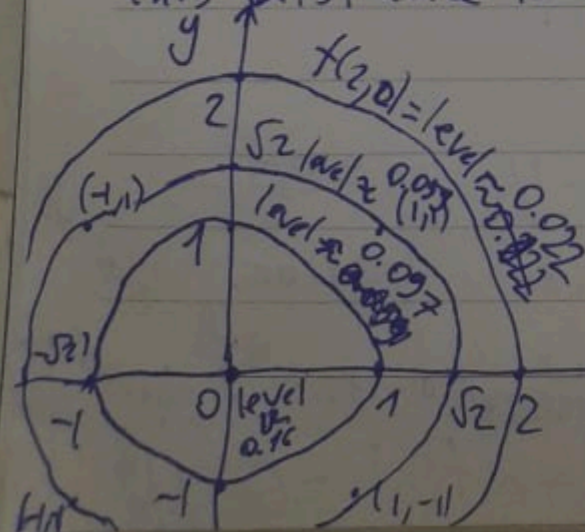 y
f(2,0)=level≈0.022
2
√2 level≈ 0.059
(-1,1)
(1,1)
level≈ 0.097
1
-√2
-1
0
level
≈
0.16
1
√2
2
-1
(1,-1)